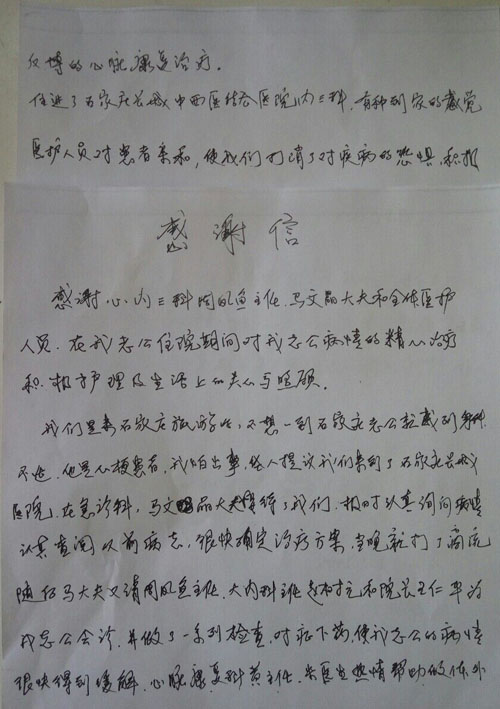 反搏的心脏康复治疗。
住进了石家庄长城中西医结合医院心内三科，有种到家的感觉
医护人员对患者亲和，使我们打消了对疾病的恐惧，积极
感谢信
感谢心内三科周凤鱼主任、马文晶大夫和全体医护
人员，在我老公住院期间对我老公病情的精心治疗
和积极护理及生活上的关心与照顾。
我们是来石家庄旅游的，不想一到石家庄老公就感到身体
不适，他是心梗患者，我怕出事，家人提议我们来到了石家庄长城
医院，在急诊科，马文晶大夫接待了我们，相对认真询问病情
认真查阅以前病志，很快确定治疗方案，当晚就打了滴流
随后马大夫又请周凤鱼主任，大内科主任 和院长王仁平为
我老公会诊，并做了一系列检查，对症下药，使我老公的病情
很快得到缓解，心脏康复科黄主任、 医生热情帮助做体外